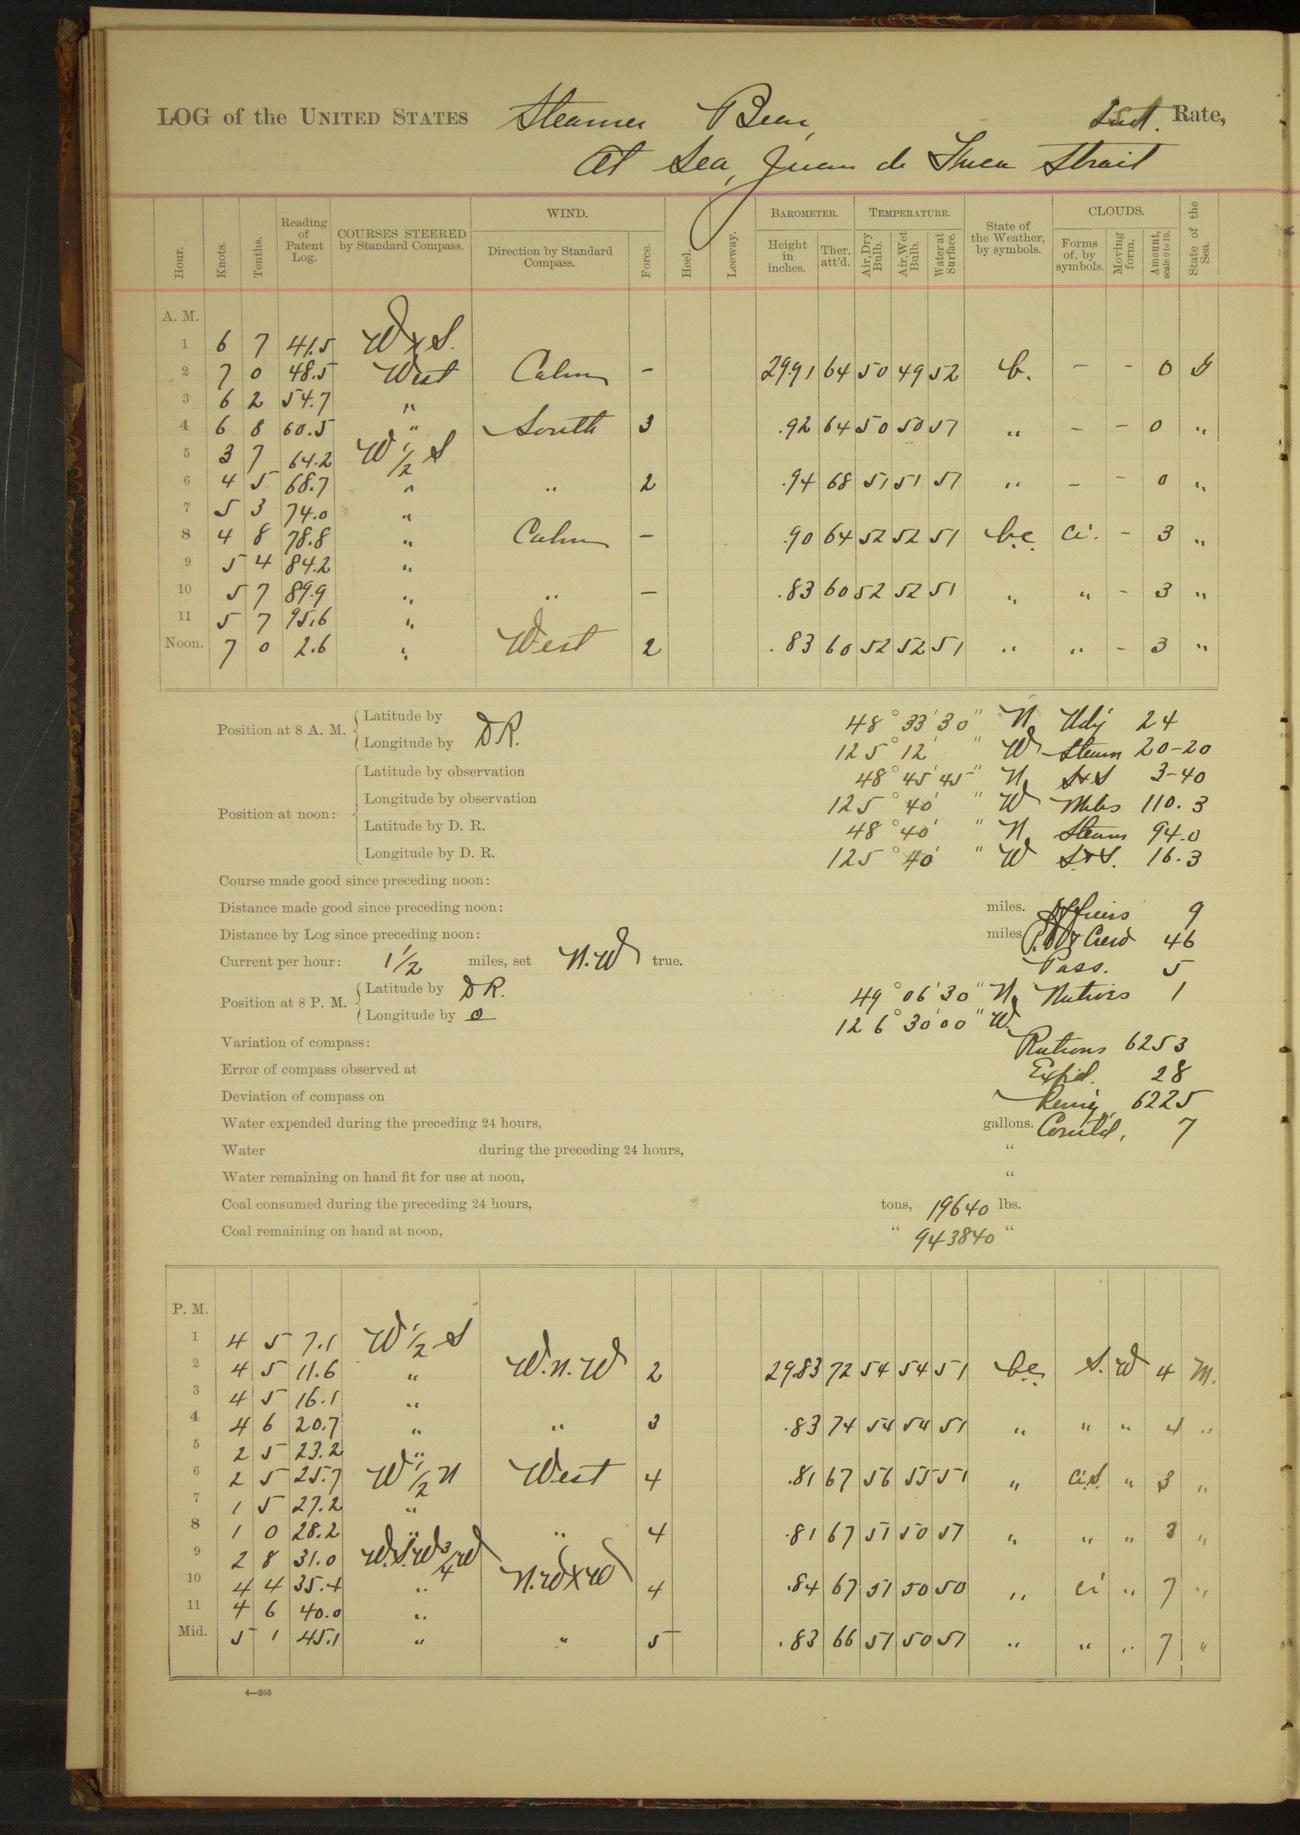 LOG of the UNITED STATES Steamer Bear, Rate,
At Sea, Juan de Fuca Strait
Hour. Knots. Tenths. Reading of Patent Log. COURSES STEERED by Standard Compass. WIND. Direction by Standard Compass. Force. Heel. Leeway. BAROMETER. Height in inches. Ther. att'd. TEMPERATURE. Air, Dry Bulb. Air, Wet Bulb. Water at Surface. State of the Weather, by symbols. CLOUDS. Forms of, by symbols. Moving form. Amount, scale 0 to 10. State of the Sea.
A. M.
1 6 7 41.5 W x S.
2 7 0 48.5 West Calm – 29.91 64 50 49 52 b. – – 0
3 6 2 54.7 "
4 6 8 60.5 " South 3 .92 64 50 50 51 " – – 0 "
5 3 7 64.2 W 1/2 S
6 4 5 68.7 " " 2 .94 68 51 51 51 " – – 0 "
7 5 3 74.0 "
8 4 8 78.8 " Calm – .90 64 52 52 51 b.c. Ci. – 3 "
9 5 4 84.2 "
10 5 7 89.9 " " – .83 60 52 52 51 " " – 3 "
11 5 7 95.6 "
Noon. 7 0 2.6 " West 2 .83 60 52 52 51 " " – 3 "
Position at 8 A. M. Latitude by D.R. 48° 33' 30" N. Udy 24
Longitude by 125° 12' " W Steam 20-20
Position at noon: Latitude by observation 48° 45' 45" N. S&S 3-40
Longitude by observation 125° 40' " W Miles 110.3
Latitude by D. R. 48° 40' " N. Steam 94.0
Longitude by D. R. 125° 40' " W S&S. 16.3
Course made good since preceding noon:
Distance made good since preceding noon: miles. Officers 9
Distance by Log since preceding noon: miles Crew 46
Current per hour: 1 1/2 miles, set N.W. true. Pass. 5
Position at 8 P. M. Latitude by D.R. 49° 06' 30" N. Natives 1
Longitude by 0 126° 30' 00" W.
Variation of compass: Rations 6253
Error of compass observed at Expd. 28
Deviation of compass on Remg. 6225
Water expended during the preceding 24 hours, gallons. Comtd. 7
Water during the preceding 24 hours, "
Water remaining on hand fit for use at noon, "
Coal consumed during the preceding 24 hours, tons, 19640 lbs.
Coal remaining on hand at noon, " 943840 "
P. M.
1 4 5 7.1 W 1/2 S
2 4 5 11.6 " W.N.W 2 29.83 72 54 54 51 b.c. S. W 4 M.
3 4 5 16.1 "
4 4 6 20.7 " " 3 .83 74 54 54 51 " " " 4 "
5 2 5 23.2 "
6 2 5 25.7 W 1/2 N West 4 .81 67 56 55 51 " Ci.S. " 3 "
7 1 5 27.2 "
8 1 0 28.2 " " 4 .81 67 51 50 51 " " " 3 "
9 2 8 31.0 W.S.W 3/4 W
10 4 4 35.4 " N.W x W 4 .84 67 51 50 50 " Ci " 7 "
11 4 6 40.0 "
Mid. 5 1 45.1 " " 5 .83 66 51 50 51 " " " 7 "
4—265